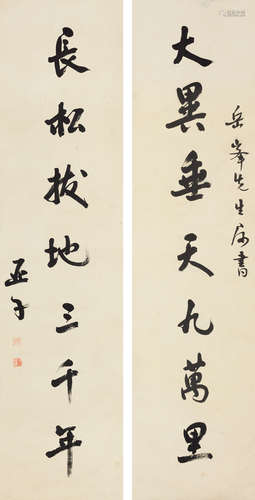 岳峯先生属書
大異垂天九萬里
長松拔地三千年
亞子